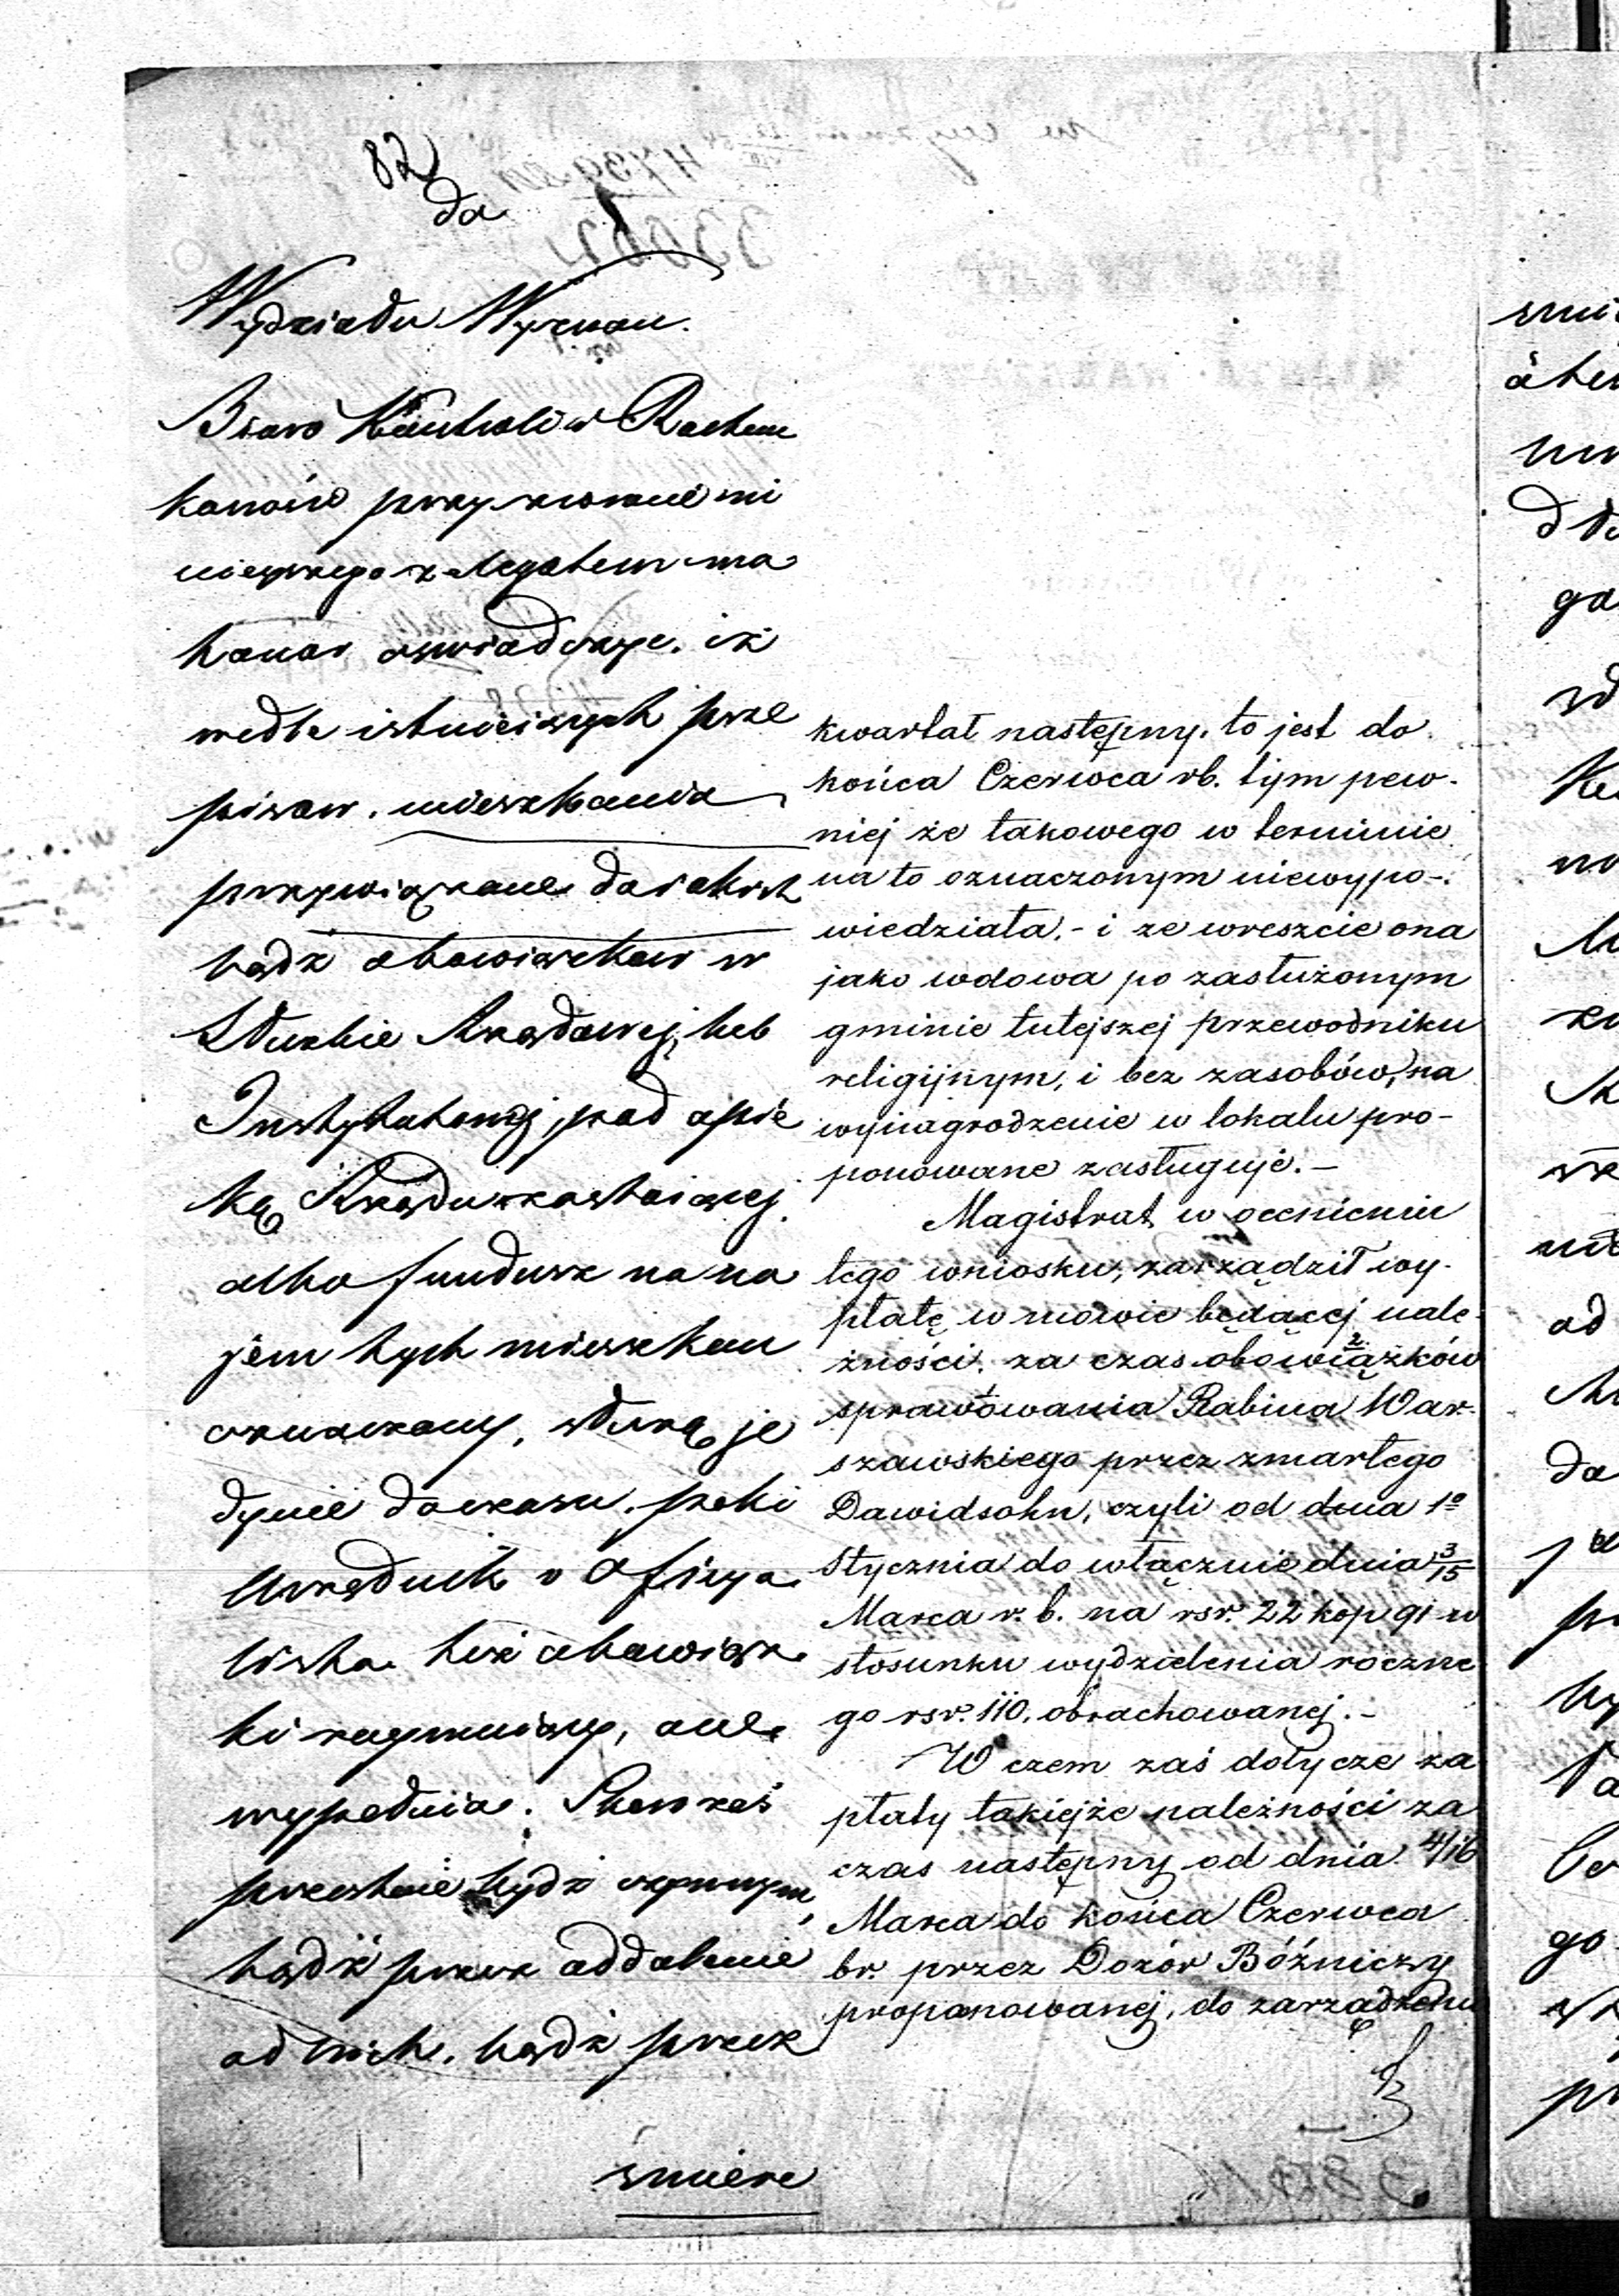 82
do
Wydziału Wyznań.
Biuro Kontroli w Rachun
kowości przy zwrocie ni
niejszego z allegatem ma
honor oświadczyć, iż
wedle istniejących prze
pisów, mieszkania
przywiązane do jakich
bądź obowiązków w
Służbie Rządowej, lub
Instytutowej, pod opie
ką Rządu zostającej
albo fundusz na na
jem tych mieszkań
oznaczony, służą je
dynie do czasu, póki
Urzędnik v Oficya
lista też obowiąz
ki zajmujący, one
wypełnia. Skoro zaś
przestanie bydź czynnym,
bądź przez oddalenie
od nich, bądź przez
śmierć
kwartał następny, to jest do
końca Czerwca rb. tym pew-
niej że takowego w terminie
na to oznaczonym niewypo-
wiedziała, - i ze wreszcie ona
jako wdowa po zasłużonym
gminie tutejszej przewodniku
religijnym, i bez zasobów, na
wynagrodzenie w lokalu pro-
ponowane zasługuje. -
Magistrat w ocenieniu
tego wniosku, zarządził wy-
płatę w mowie będącej nale-
żności, za czas obowiązków
sprawowania Rabina War-
szawskiego przez zmarłego
Dawidsohn, czyli od dnia 1º
Stycznia do włącznie dnia 3/15
Marca r. b. na rsr. 22 kop 91 w
stosunku wydzielenia roczne
go rsr. 110, obrachowanej. -
W czem zaś dotycze za
płaty takiejże należności za
czas następny od dnia 4/16
Marca do końca Czerwca
br. przez Dozór Bóźniczy
proponowanej, do zarządzenia